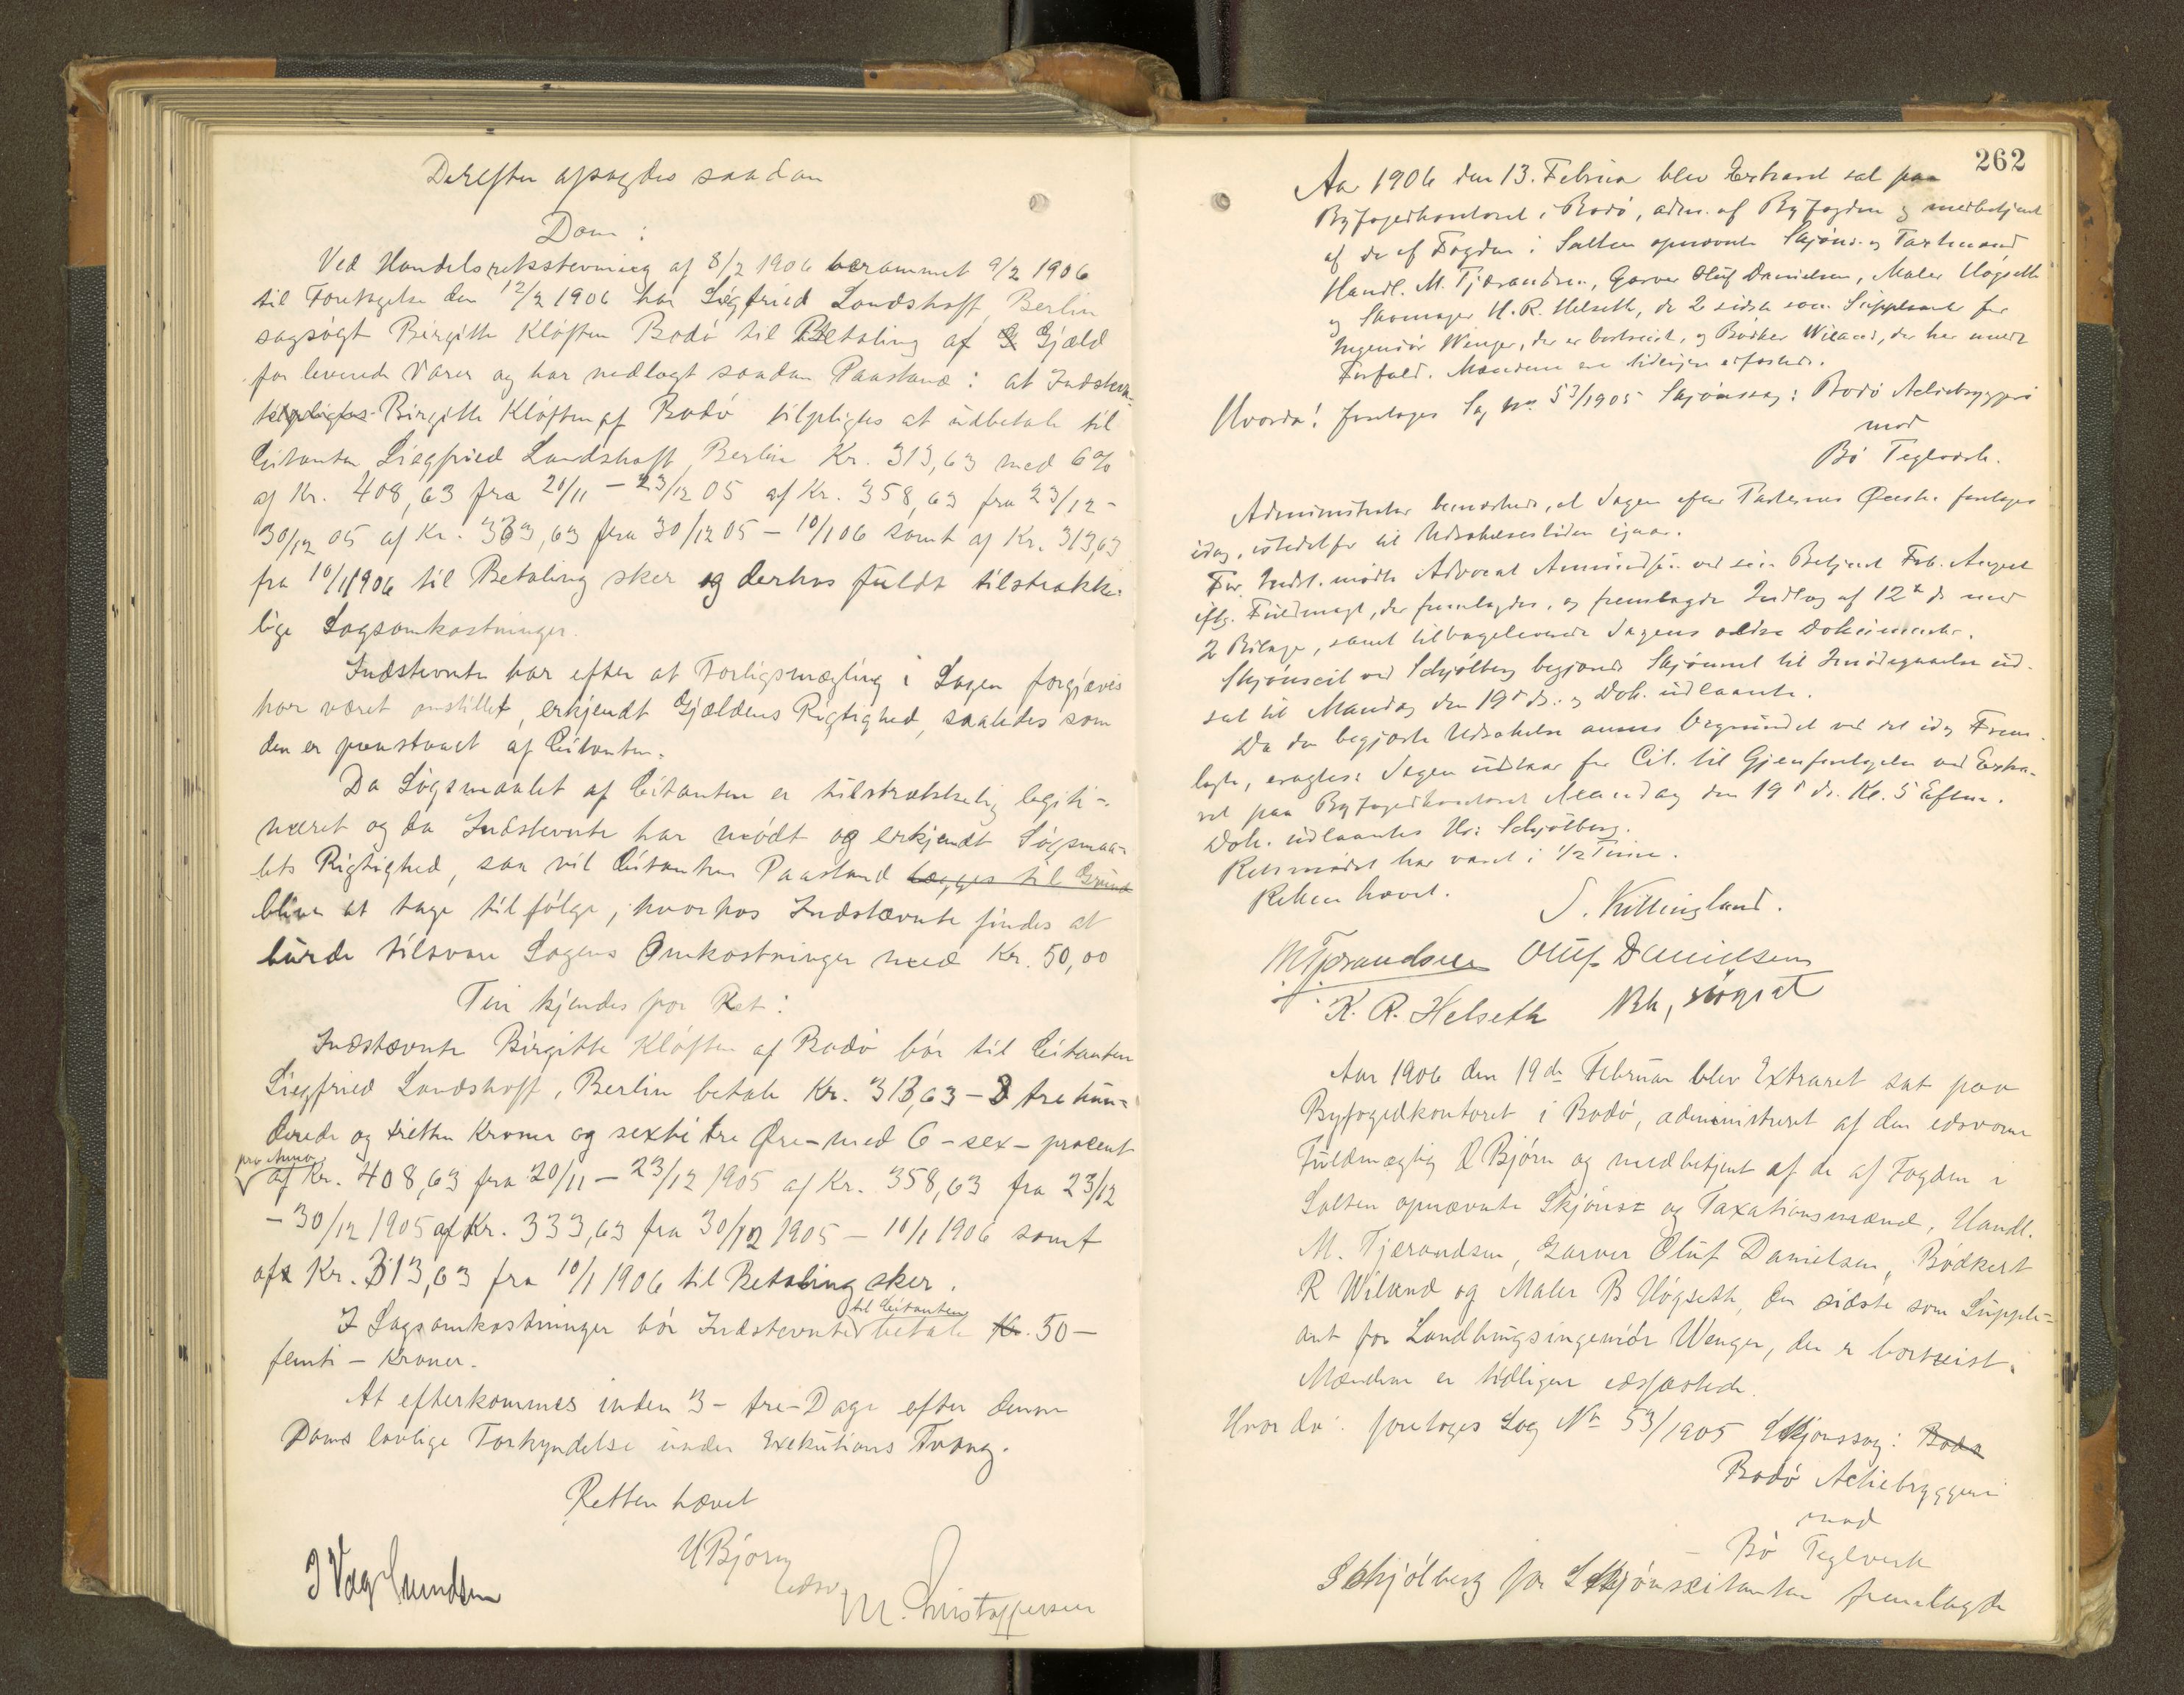 Derefter afsagdes saadan
Dom:
Ved Handelsretsstevning af 8/2 1906 berammet 9/2 1906
til Foretagelse den 12/2 1906 har Siegfried Landshoff, Berlin
sagsøgt Birgitte Kløften Bodø til Betaling af Gjæld
for leverede Varer og har nedlagt saadan Paastand: at Indstevn-
tilpligtes Birgitte Kløften af Bodø tilpligtes at udbetale til
Citanten Siegfried Landshoff, Berlin Kr. 313,63 med 6%
af Kr. 408,63 fra 20/11 - 23/12 05 af Kr. 358,63 fra 23/12 -
30/12 05 af Kr. 333,63 fra 30/12 05 - 10/1 06 samt af Kr. 313,63
fra 10/1 1906 til Betaling sker og derhos fulde tilstrække-
lige Sagsomkostninger.
Indstevnte har efter at Forligsmægling i Sagen forgjæves
har været anstillet, erkjendt Gjældens Rigtighed, saaledes som
den er paastaaet af Citanten.
Da Søgsmaalet af Citanten er tilstrækkelig legiti-
meret og da Indstevnte har mødt og erkjendt Søgsmaa-
lets Rigtighed, saa vil Citantens Paastand lægges til Grund
blive at tage tilfølge, hvorhos Indstævnte findes at
burde tilsvare Sagens Omkostninger med Kr. 50,00
Thi kjendes for Ret:
Indstævnte Birgitte Kløften af Bodø bør til Citanten
Siegfried Landshoff, Berlin betale Kr. 313,63 - tre hun-
drede og tretten Kroner og sexti tre Øre - med 6 - sex - procent
pro Anno
af Kr. 408,63 fra 20/11 - 23/12 1905 af Kr. 358,63 fra 23/12
- 30/12 1905 af Kr. 333,63 fra 30/12 1905 - 10/1 1906 samt
af Kr. 313,63 fra 10/1 1906 til Betaling sker.
til Citanten
I Sagsomkostninger bør Indstevnte betale Kr. 50 -
femti - Kroner.
At efterkommes inden 3 - tre - Dage efter denne
Doms lovlige Forkyndelse under Exekutions Tvang.
Retten hævet
U Bjørn
edsv.
J Vaglundsen
M. Kristoffersen
262
Aar 1906 den 13. Februar blev Extraret sat paa
Byfogedkontoret i Bodø, adm. af Byfogden og medbetjent
af de af Fogden i Salten opnævnte Skjøns- og Taxtmænd
Handl. M. Tjærandsen, Garver Oluf Danielsen, Maler Høgseth
og Skomager K. R. Helseth, de 2 sidste som Suppleant for
Ingeniør Wenger, der er bortreist, og Bødker Wiland, der har meldt
Forfald. Mændene ere tidligere edfæstede.
Hvorda! foretages Sag No 53/1905 Skjønssag: Bodø Actiebryggeri
mod
Bø Teglverk.
Administrator bemærkede, at Sagen efter Parternes Ønske foretages
idag, istedetfor til Udsættelsestiden igaar.
For Indst. mødte Advocat Amundsen ved sin Betjent Frk. August
iflg. Fuldmagt, der fremlagdes, og fremlagde Indlæg af 12te ds med
2 Bilage, samt tilbageleverede Sagens ældre Dokumenter.
Skjønscit ved Schjølberg begjærede Skjønnet til Imødegaaelse ud-
sat til Mandag den 19de ds. og Dok. udlaante.
Da den begjærte Udsættelse ansees begrundet ved det idag Frem-
lagte, eragtes: Sagen udstaar for Cit. til Gjenforetagelse ved Extra-
ret paa Byfogedkontoret Mandag den 19de ds. Kl. 5 Efterm.
Dok. udlaantes Hr. Schjølberg.
Retsmødet har varet i 1/2 Time.
Retten hævet.
S. Killingland.
M Tjærandsen Oluf Danielsen
K. R. Helseth Bh, Høgset
Aar 1906 den 19de Februar blev Extraret sat paa
Byfogedkontoret i Bodø, administreret af den edsvorne
Fuldmægtig U Bjørn og medbetjent af de af Fogden i
Salten opnævnte Skjøns- og Taxationsmænd, Handl.
M. Tjærandsen, Garver Oluf Danielsen, Bødkert
R Wiland og Maler B Høgseth, den sidste som Supple-
ant for Landbrugsingeniør Wenger, der er bortreist.
Mændene er tidligere edsfæstede.
Hvor da: foretages Sag No 53/1905 Skjønssag: Bodø
Bodø Actiebryggeri
mod
- Bø Teglverk
Schjølberg for Skjønscitanten fremlagde